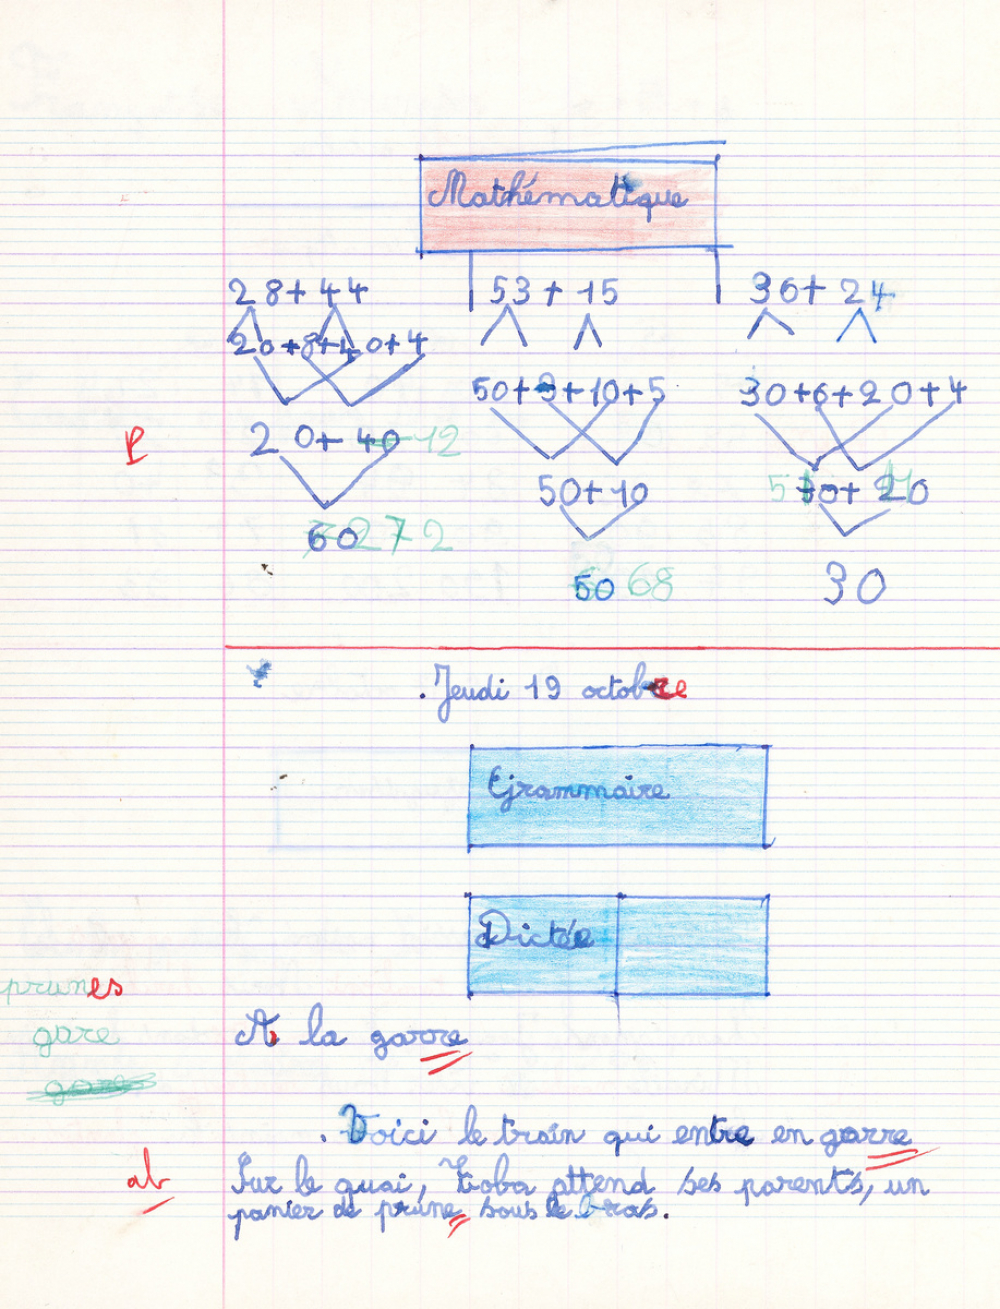 Mathématique
28+44 53+15 36+24
20+8+40+4
50+3+10+5 30+6+20+4
20+40 12
50+10 30+20
60 72
50 68 30
Jeudi 19 octobre
Grammaire
Dictée
prunes
gare A la garre
gare
. Voici le train qui entre en garre
ab Sur le quai, Zoba attend ses parents, un
panier de prune sous le bras.